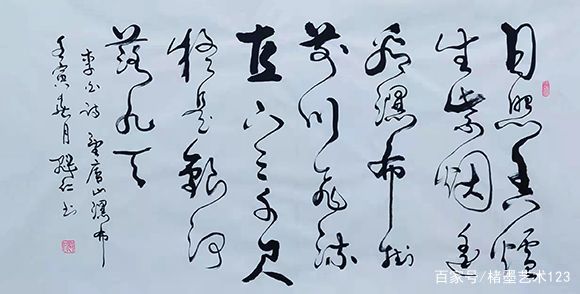 日照香爐
生紫烟遥
看瀑布挂
前川飛流
直下三千尺
疑是銀河
落九天
李白诗 望庐山瀑布
壬寅春月 书
百家号/楮墨艺术123